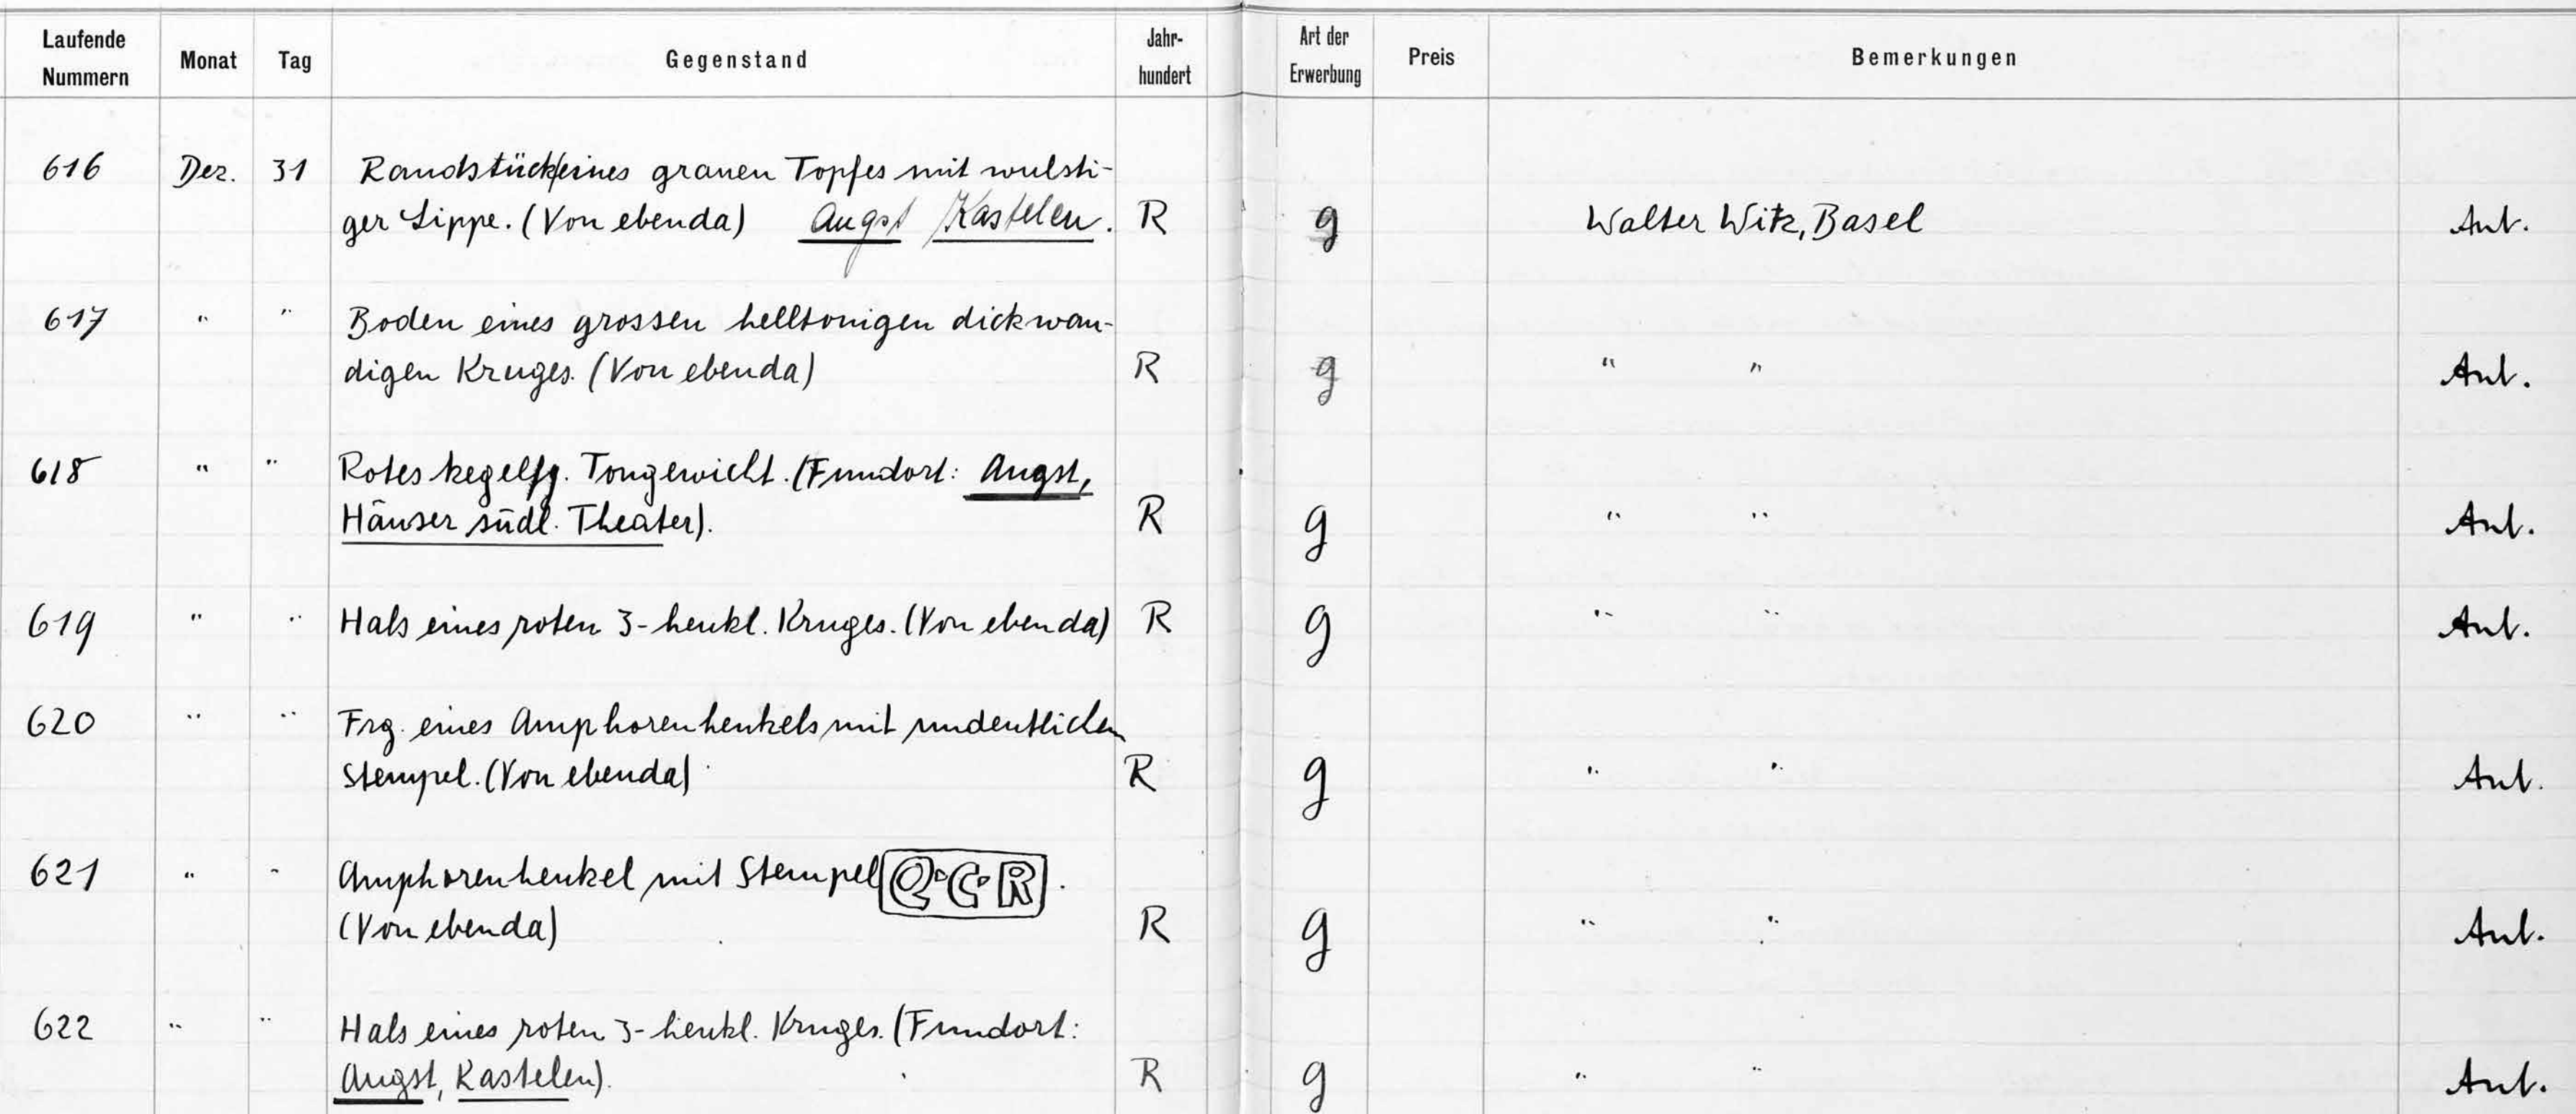 Laufende Nummern Monat Tag Gegenstand Jahr-hundert Art der Erwerbung Preis Bemerkungen
616 Dez. 31 Randstück eines grauen Topfes mit wulsti-
ger Lippe. (Von ebenda) Augst Kastelen. R g Walter Witz, Basel Ant.
617 " " Boden eines grossen helltonigen dickwan-
digen Kruges. (Von ebenda) R g " " Ant.
618 " " Rotes kegelfg. Tongewicht. (Fundort: Augst,
Häuser südl. Theater). R g " " Ant.
619 " " Hals eines roten 3-henkl. Kruges. (Von ebenda) R g " " Ant.
620 " " Frg. eines Amphorenhenkels mit undeutlichem
Stempel. (Von ebenda) R g " " Ant.
621 " " Amphorenhenkel mit Stempel Q·C·R.
(Von ebenda) R g " " Ant.
622 " " Hals eines roten 3-henkl. Kruges. (Fundort:
Augst, Kastelen). R g " " Ant.